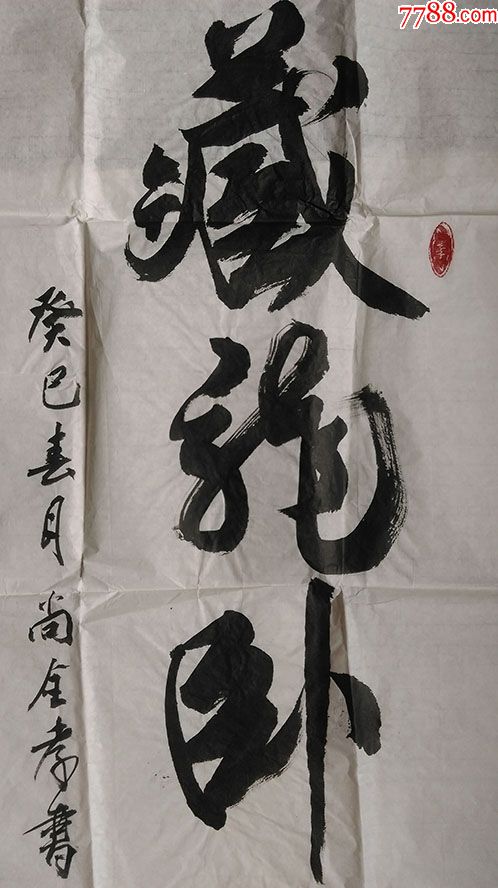 7788.com
藏龍卧
李
癸巳春月尚全孝書